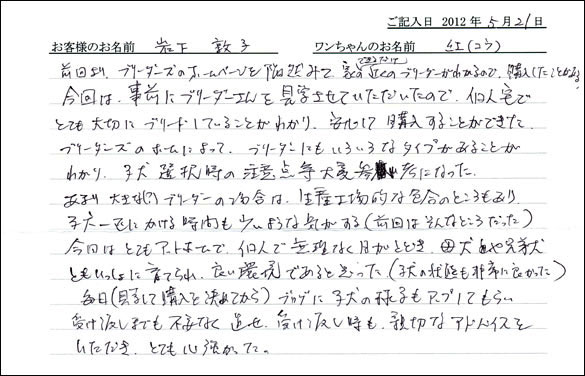 ご記入日 2012年5月21日
お客様のお名前 岩下 敦子 ワンちゃんのお名前 紅(コウ)
できるだけ
前回より、ブリーダーズのホームページを 見て 家の近くのブリーダーがわかるので、購入したことがある。
今回は、事前にブリーダーさんを見学させていただいたので、個人宅で
とても大切にブリードしていることがわかり、安心して購入することができた。
ブリーダーズのホームによって、ブリーダーにもいろいろなタイプがあることが
わかり、子犬選択時の注意点等大変参考になった。
あまり大きな(?)ブリーダーの場合は、生産工場的な色合のところもあり
子犬一匹にかける時間も少いような気がする(前回はそんなところだった)
今回はとてもアットホームで、個人で無理なく目がとどき、母犬や兄弟犬
ともいっしょに育てられ、良い環境であると思った(子犬の状態も非常に良かった)
毎日(見学して購入を決めてから)ブログに子犬の様子もアップしてもらい
受け渡しまでも不安なく過せ、受け渡し時も、親切なアドバイスを
いただき、とても心強かった。